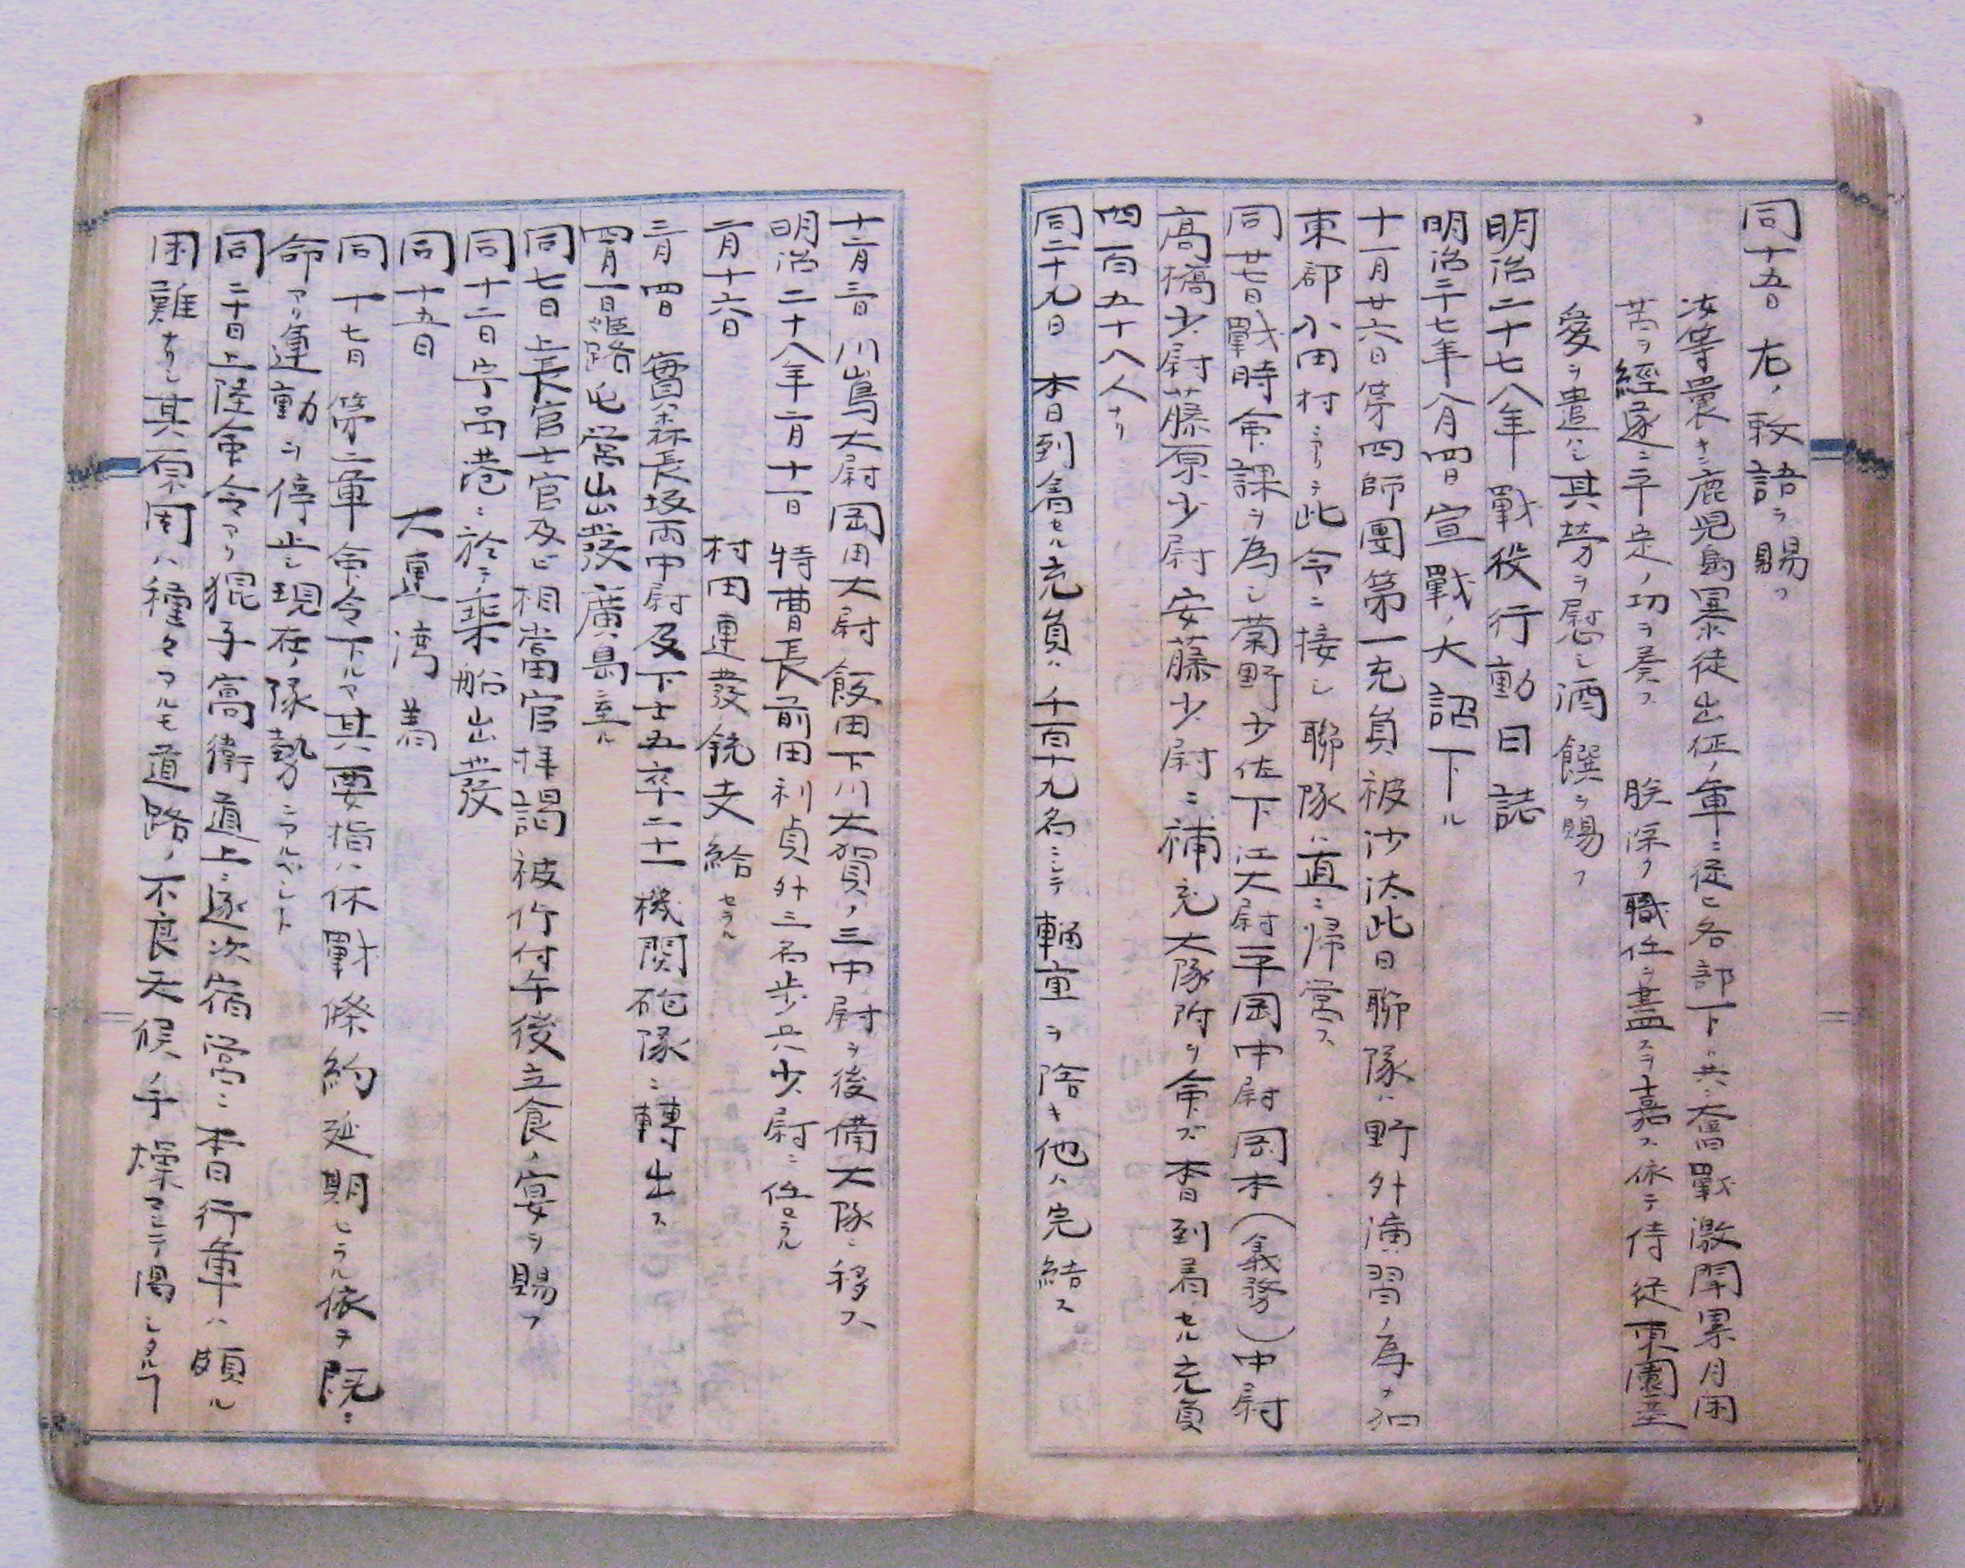 同十五日左ノ敕語ヲ賜フ
汝等曩キニ鹿児島暴徒出征ノ軍ニ従ヒ各部下ト共ニ奮戰激闘累月困
苦ヲ經遂ニ平定ノ功ヲ奏ス 朕深ク職任ヲ盡スヲ嘉ス依テ侍従東園基
愛ヲ遣ハシ其労ヲ慰シ酒饌ヲ賜フ
明治二十七八年戰役行動日誌
明治二十七年八月四日宣戰ノ大詔下ル
十一月廿六日第四師團第一充員被沙汰此日聯隊ハ野外演習ノ為メ
東部小田村ニアリテ此令ニ接シ聯隊ハ直ニ帰営ス
同廿七日戰時命課ヲ為シ菊野少佐下江大尉平岡中尉岡本(義務)中尉
高橋少尉藤原少尉安藤少尉ニ補充大隊附ヲ命ズ本日到着セル充員
四百五十八人ナリ
同二十九日 本日到着セル充員ハ千百十九名ニシテ輜重ヲ除キ他ハ完結ス
十二月三日川嶌大尉岡田大尉飯田下川大賀ノ三中尉ヲ後備大隊ニ移ス
明治二十八年二月十一日特曹長前田利貞外三名歩兵少尉ニ任セラル
二月十六日 村田連發銃支給セラル
三月四日 實森長坂両中尉及下士五卒二十一機関砲隊ニ轉出ス
四月一日姫路屯営出發廣島ニ至ル
同七日上長官士官及ヒ相當官拝謁被仰付午後立食ノ宴ヲ賜フ
同十二日宇品港ニ於テ乗船出發
同十五日 大連湾着
同十七日第二軍命令下ル其要指ハ休戰條約延期セラル依テ既ニ
命アリ運動ヲ停止シ現在ノ隊勢ニアルベシト
同二十日上陸命令アリ猊子高衛道上ニ逐次宿営シ本日行軍ハ頗ル
困難ナリシ其原因ハ種々アルモ道路ノ不良天候ノ